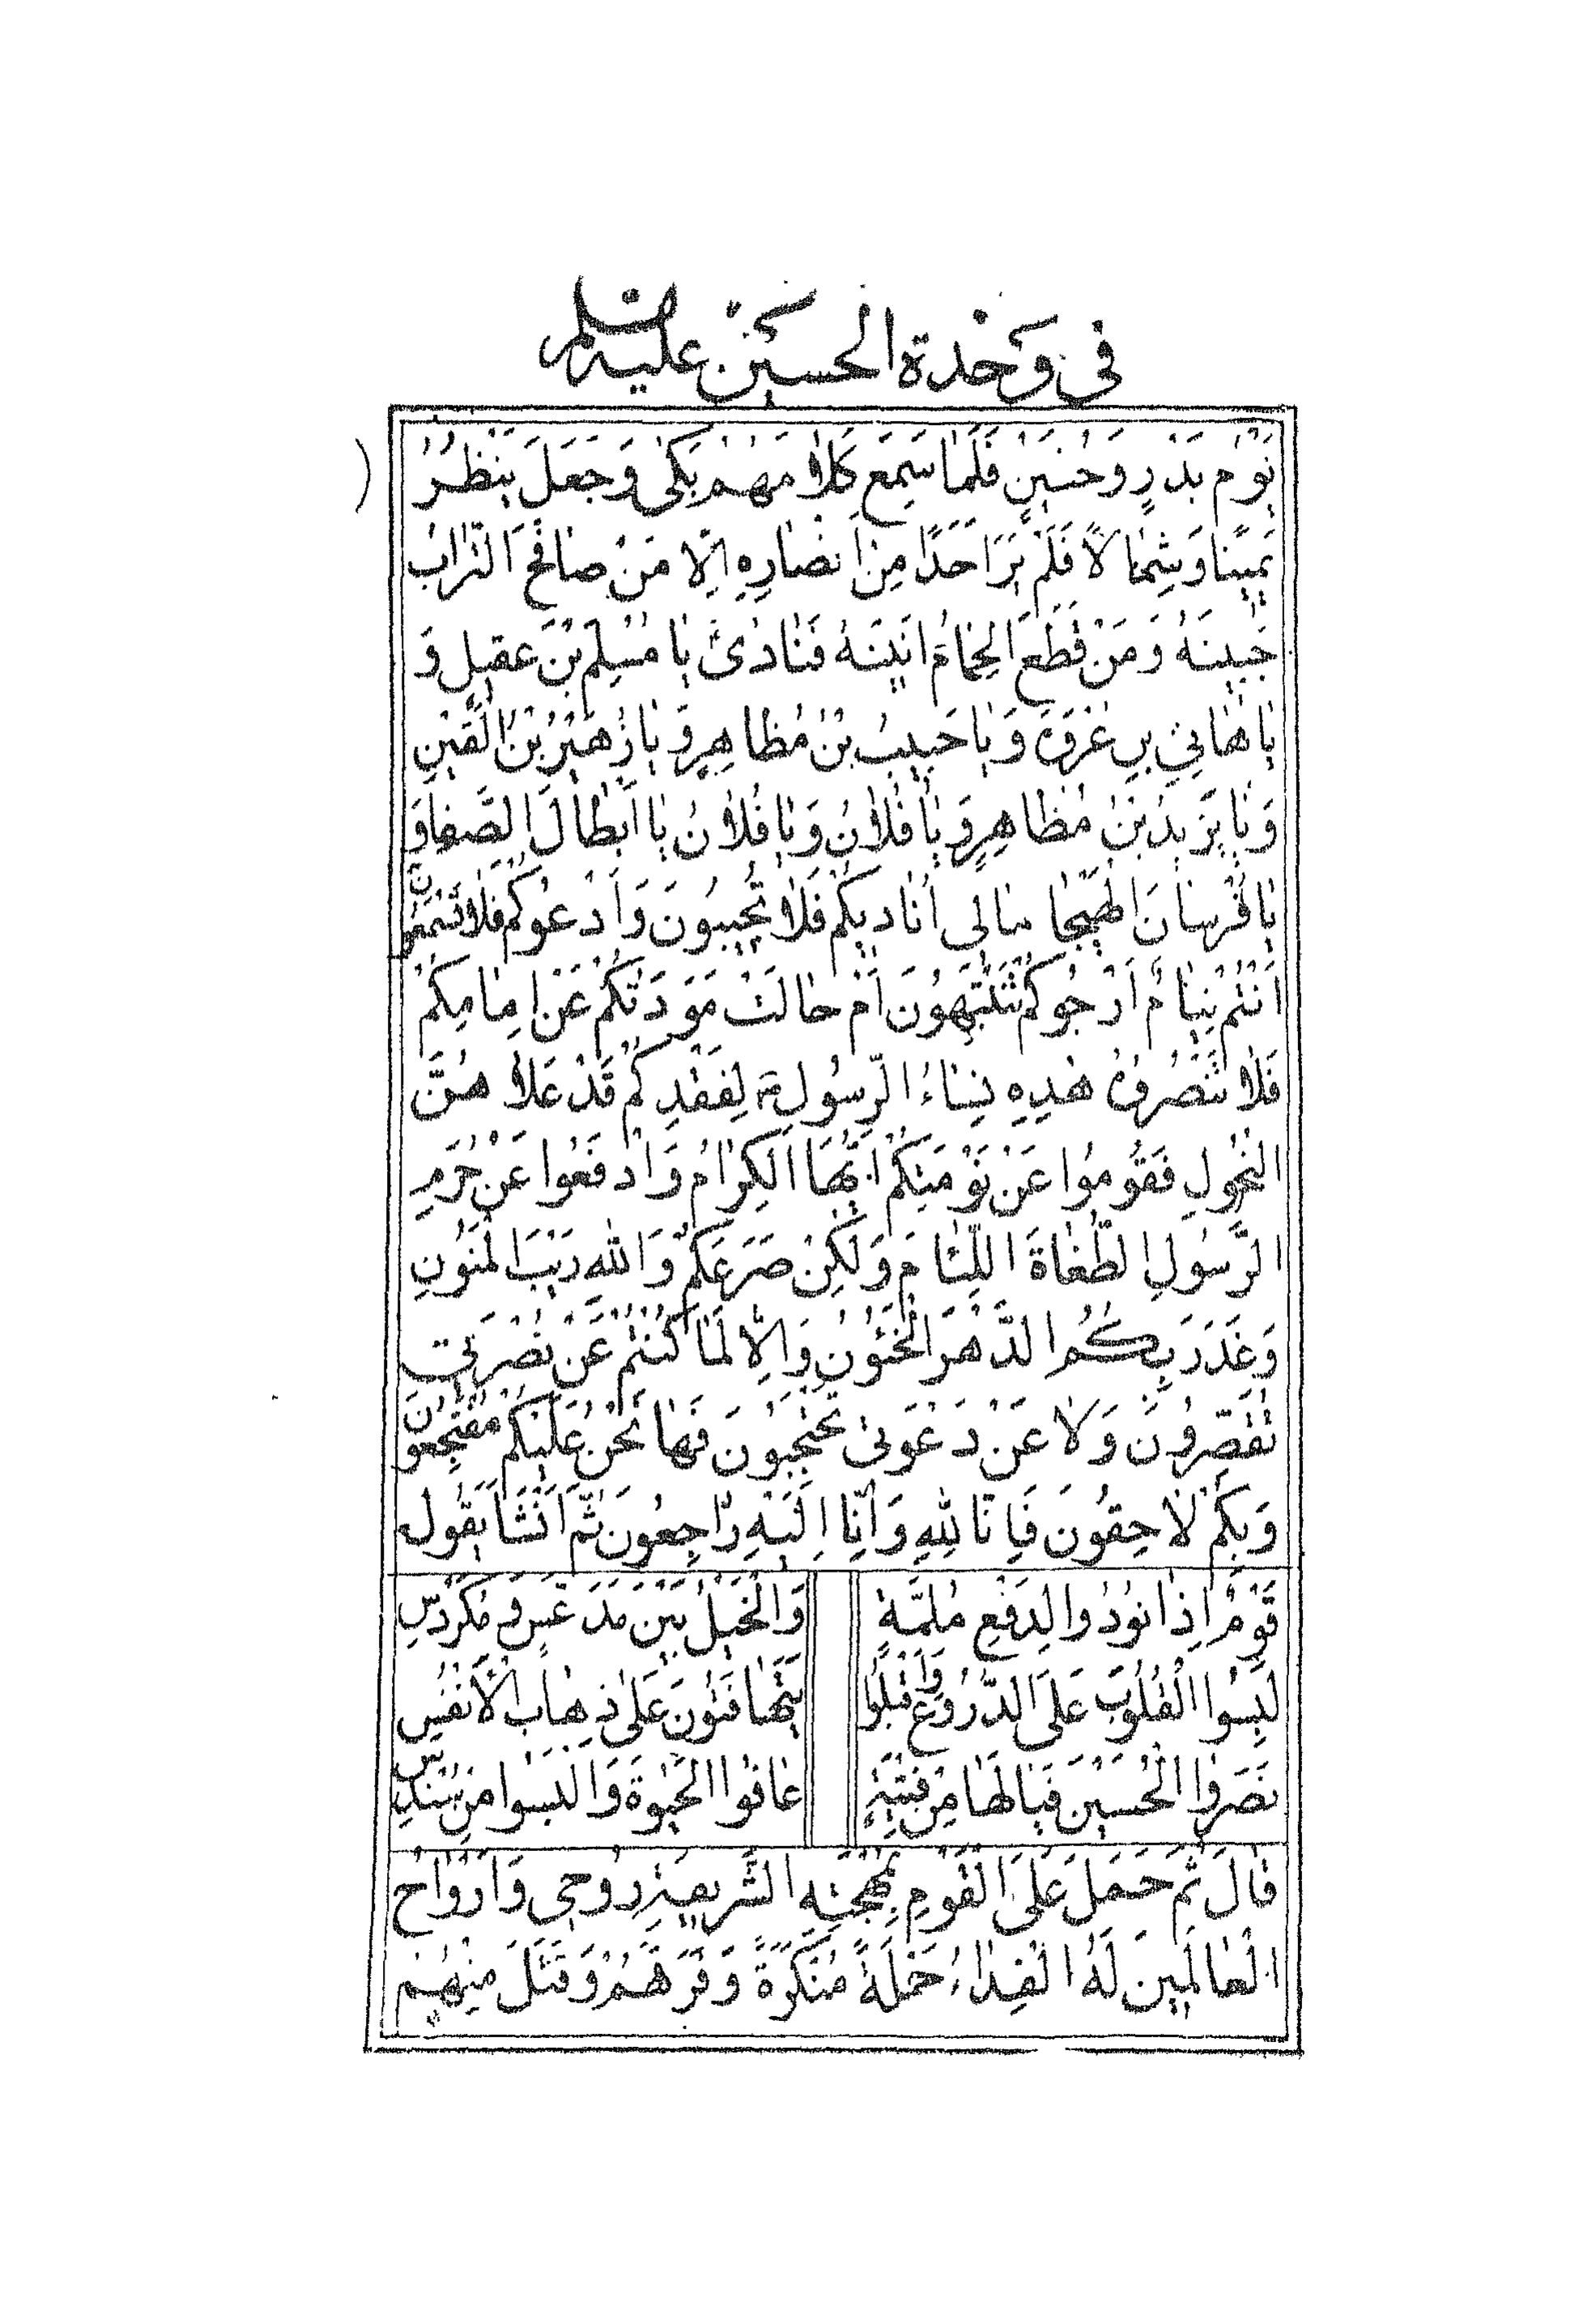 في وَحْدة الحسَين عليه السلم
يَوْمُ بَدْرٍ وَحُنَيْنٍ فَلَمّا سَمِعَ كَلامَهُمْ بَكىٰ وَجَعَلَ يَنْظُرُ
يَمينًا وَشِمالًا فَلَمْ يَرَ اَحَدًا مِنْ اَنْصارِهِ اِلّا مَنْ صافَحَ التُّرابُ
جَبينَهُ وَمَنْ قَطَعَ الحِمامُ اَنينَهُ فَنادىٰ يا مُسْلِمَ بْنَ عقيلٍ وَ
يا هانِيَ بنِ عُرْوَةَ وَيا حَبيبُ بْنُ مُظاهِرٍ وَيا زُهَيْرُ بْنُ القَيْنِ
وَيا يَزيدُ بْنُ مُظاهِرٍ وَيا فُلانُ وَيا فُلانُ يا اَبْطالَ الصَّفا وَ
يا فُرْسانَ الهَيْجا مالي اُناديكُمْ فَلا تُجيبُونَ وَاَدْعُوكُمْ فَلا تَسْمَعُونَ
اَنْتُمْ نِيامٌ اَرْجُوكُمْ تَنْتَبِهُونَ اَمْ حالَتْ مَوَدَتُكُمْ عَنْ اِمامِكُمْ
فَلا تَنْصُرُوهُ هٰذِهِ نِساءُ الرَّسُولِ لِفَقْدِكُمْ قَدْ عَلاهُنَّ
النُّحُولِ فَقُومُوا عَنْ نَوْمَتِكُمْ اَيُّهَا الكِرامُ وَادْفَعُوا عَنْ حُرَمِ
الرَّسُولِ الطُّغاةَ اللِّئامَ وَلٰكِنْ صَرَعَكُمْ وَاللهِ رَيْبَ المَنُونِ
وَغَدَرَ بِكُمُ الدَّهْرَ الخَئُونُ وَاِلّا لَما كُنْتُمْ عَنْ نُصْرَتي
تُقَصِّرُونَ وَلا عَنْ دَعْوَتي تَحْتَجِبُونَ فَها نَحْنُ عَلَيْكُمْ مُفْتَجِعُونَ
وَبِكُمْ لاحِقُونَ فَاِنّا لِلهِ وَاِنّا اِلَيْهِ راجِعُونَ ثُمَّ اَنْشَأَ يَقُولُ
قَوْمٌ اِذا نُودُوا لِدَفْعِ مُلِمَّةٍ وَالْخَيْلُ بَيْنَ مَدَعَّسٍ وَمُكَرْدَسِ
لَبِسُوا الْقُلُوبَ عَلَى الدُّرُوعِ وَاَقْبَلُوا يَتَهافَتُونَ عَلىٰ ذِهابِ الْاَنْفُسِ
نَصَرُوا الْحُسَيْنَ فَيا لَها مِنْ فِتْيَةٍ عافُوا الحَيٰوةَ وَاُلْبِسُوا مِنْ سُنْدُسِ
قالَ ثُمَّ حَمَلَ عَلَى القَوْمِ بِمُهْجَتِهِ الشَّريفَةِ رُوحي وَاَرْواحُ
الْعالَمينَ لَهُ الْفِداءُ حَمْلَةً مُنْكَرَةً وَفَرَّقَهُمْ وَقَتَلَ مِنْهُمْ